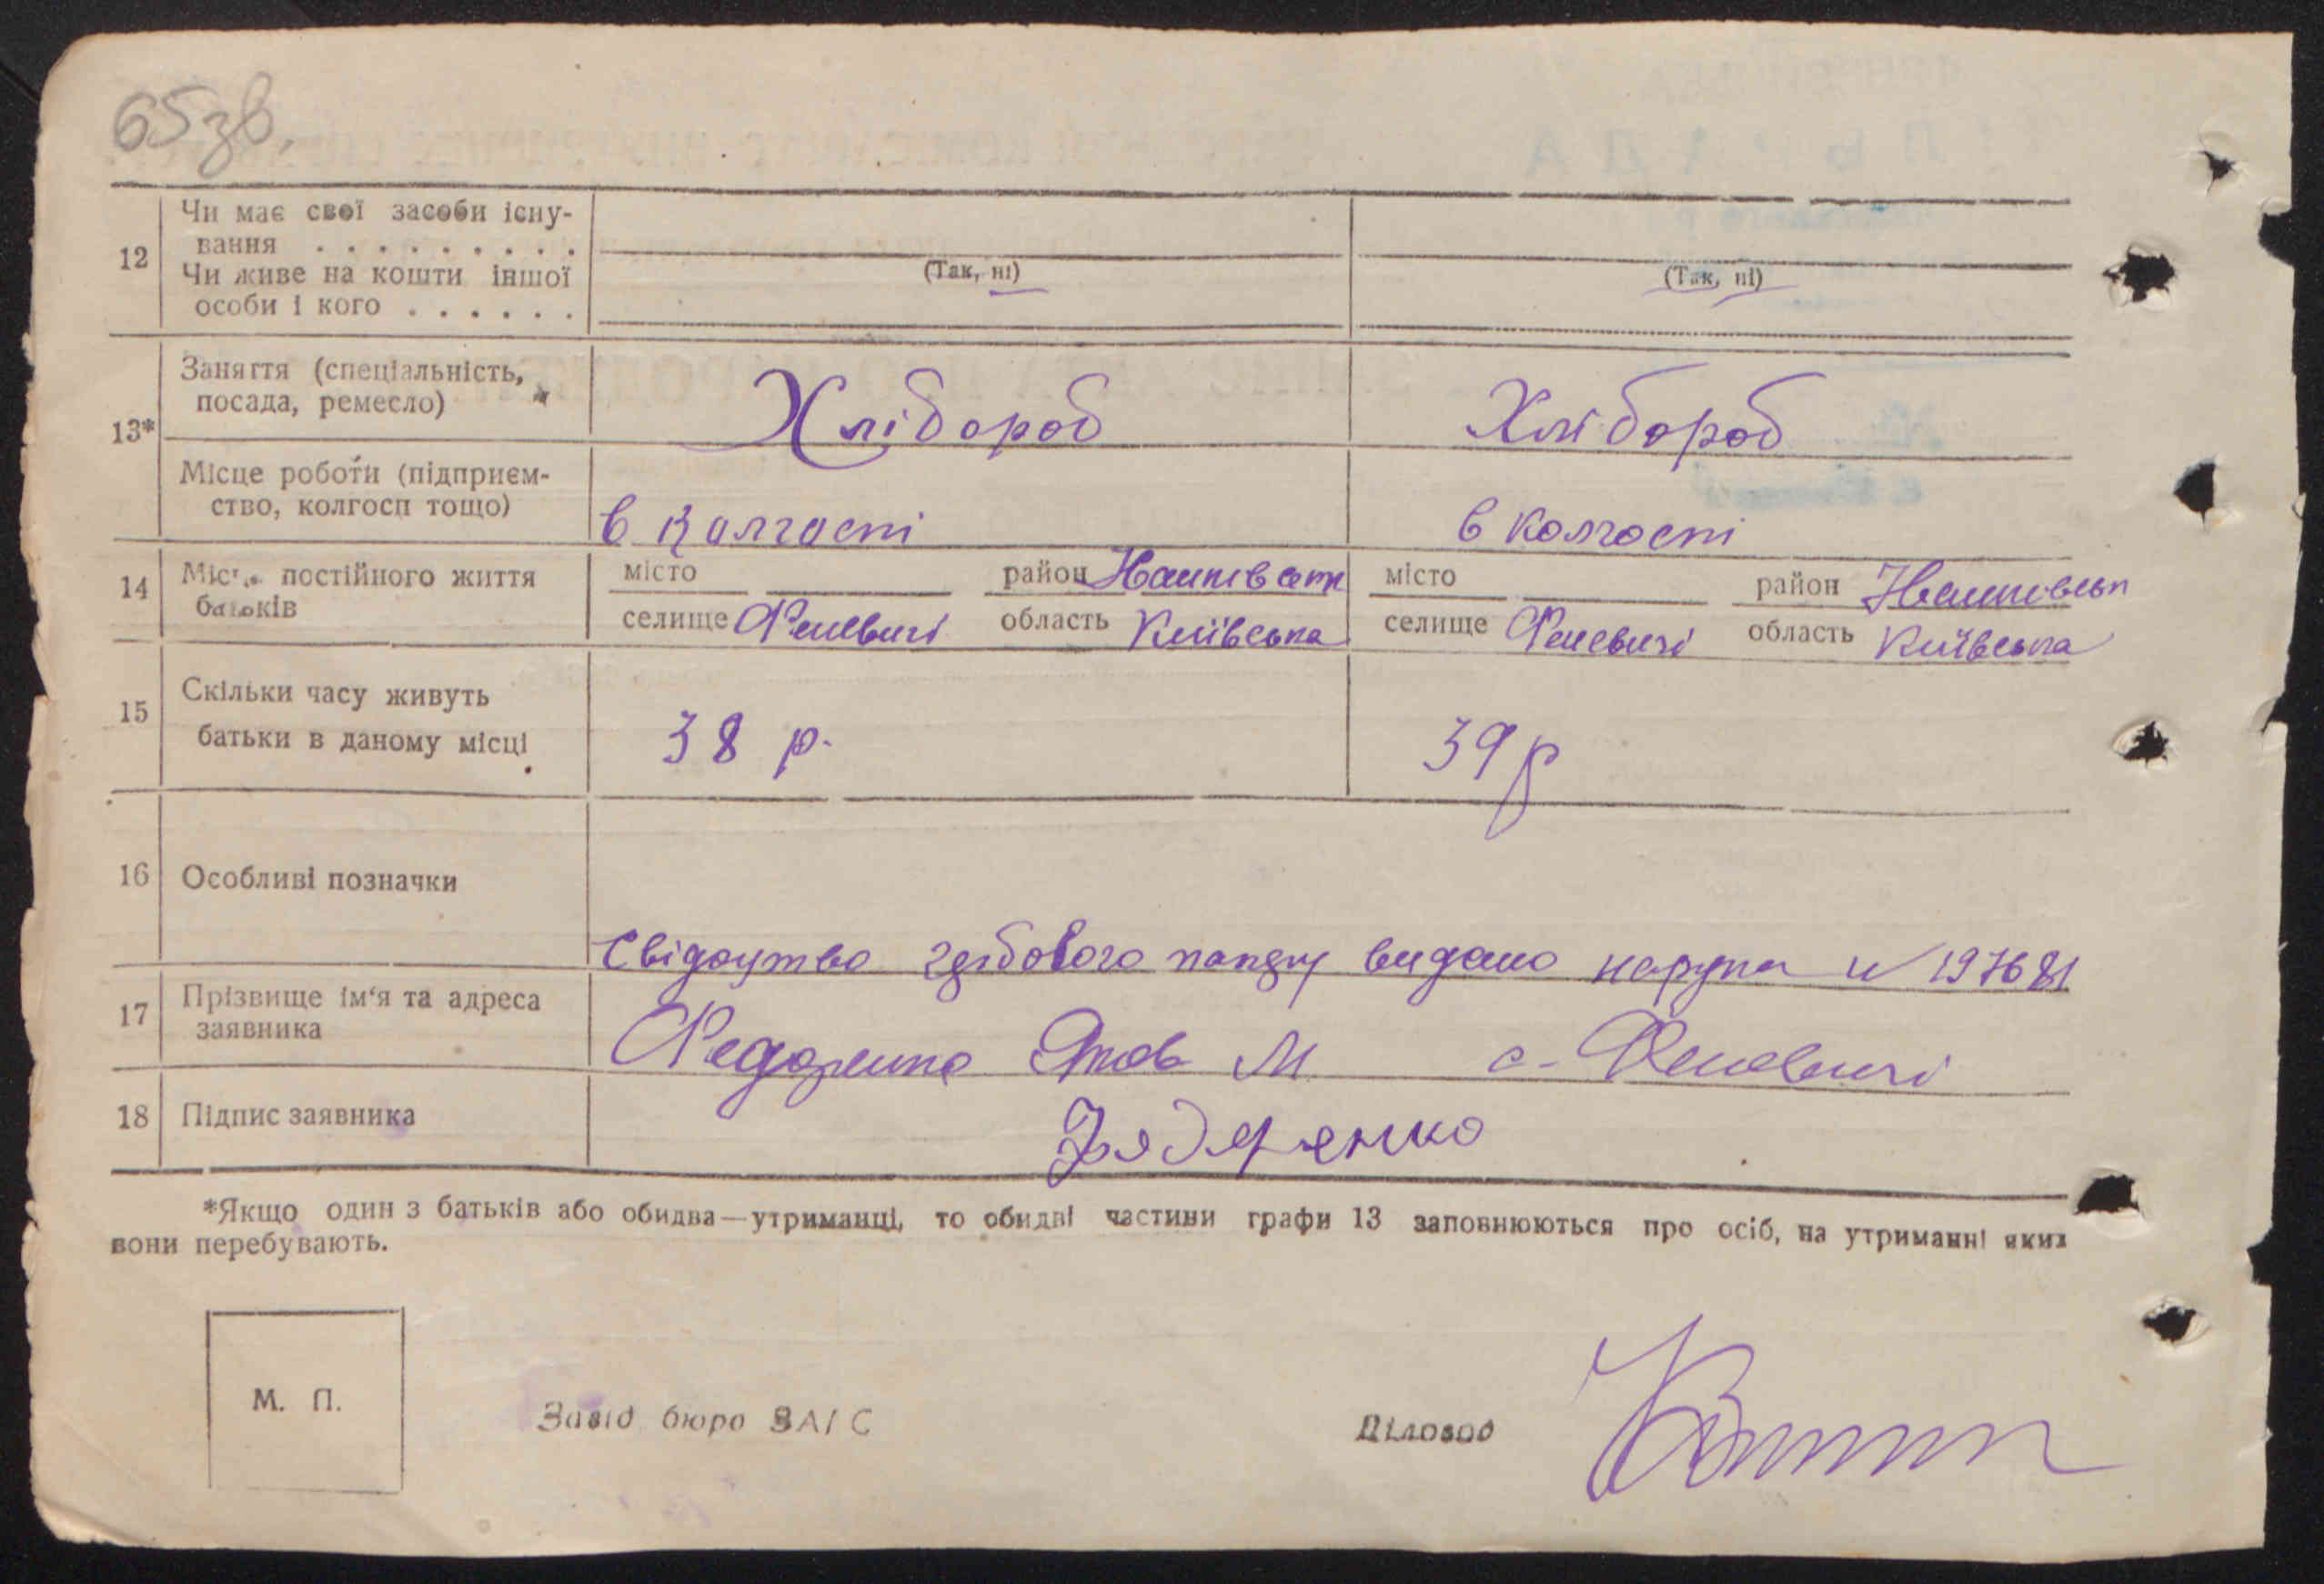 65зв.
12 Чи має свої засоби існу-
вання . . . . . . . . .
Чи живе на кошти іншої
особи і кого . . . . . .
(Так, ні) (Так, ні)
13* Заняття (спеціальність,
посада, ремесло) Хлібороб Хлібороб
Місце роботи (підприєм-
ство, колгосп тощо) в колгоспі в колгоспі
14 Місце постійного життя
батьків
місто район місто район
селище Феневичі область Київська селище Феневичі область Київська
15 Скільки часу живуть
батьки в даному місці 38 р. 39 р
16 Особливі позначки
Свідоцтво видано на руки N 197681
17 Прізвище ім'я та адреса
заявника
Федоренко Яков М с. Феневичі
18 Підпис заявника
*Якщо один з батьків або обидва—утриманці, то обидві частини графи 13 заповнюються про осіб, на утриманні яких
вони перебувають.
М. П.
Завід бюро ЗАГС Діловод